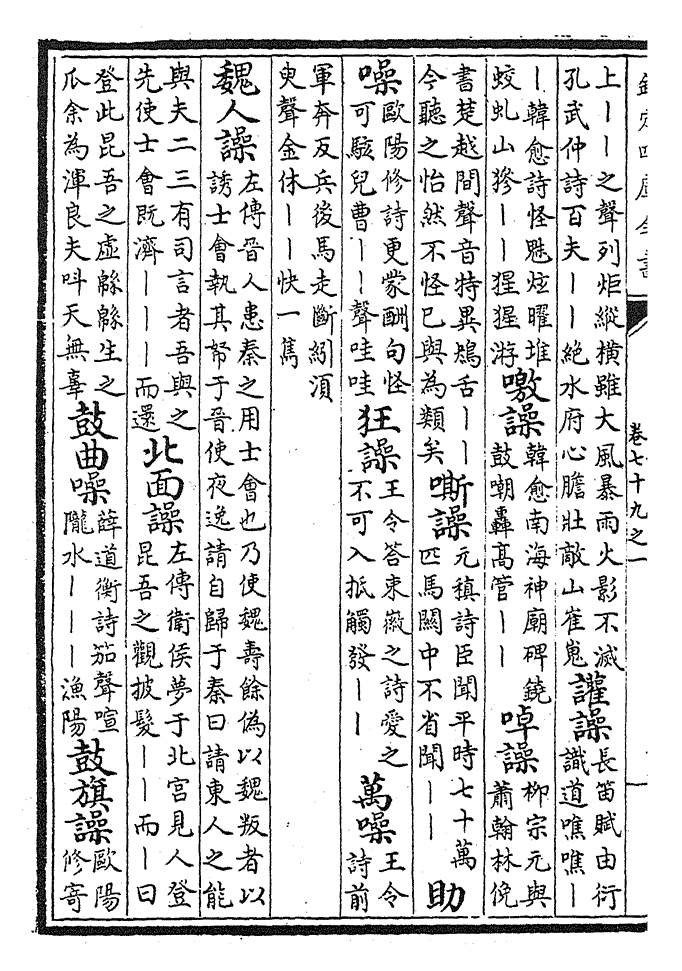 欽定四庫全書
卷七十九之一
上丨丨之聲列炬縱横雖大風暴雨火影不滅
孔武仲詩百夫丨丨絶水府心膽壯敵山崔嵬
讙譟
長笛賦由衍
識道噍噍丨
丨韓愈詩怪魅炫曜堆
蛟虬山丨丨猩猩游
噭譟
韓愈南海神廟碑鐃
鼓嘲轟高管丨丨
啅譟
柳宗元與
蕭翰林俛
書楚越間聲音特異鴂舌丨丨
今聽之怡然不怪已與為類矣
嘶譟
元稹詩臣聞平時七十萬
匹馬關中不省聞丨丨
助
噪
歐陽修詩更蒙酬句怪
可駭兒曹丨丨聲哇哇
狂譟
王令答束徽之詩愛之
不可入抵觸發丨丨
萬噪
王令
詩前
軍奔反兵後馬走斷紖湏
臾聲金休丨丨快一雋
魏人譟
左傳晉人患秦之用士會也乃使魏壽餘偽以魏叛者以
誘士會執其帑于晉使夜逸請自歸于秦曰請東人之能
與夫二三有司言者吾與之
先使士會既濟丨丨丨而還
北面譟
左傳衛侯夢于北宮見人登
昆吾之觀披髮丨丨而丨曰
登此昆吾之虚緜緜生之
瓜余為渾良夫叫天無辜
鼓曲噪
薛道衡詩笳聲喧
隴水丨丨丨漁陽
鼓旗譟
歐陽
修寄